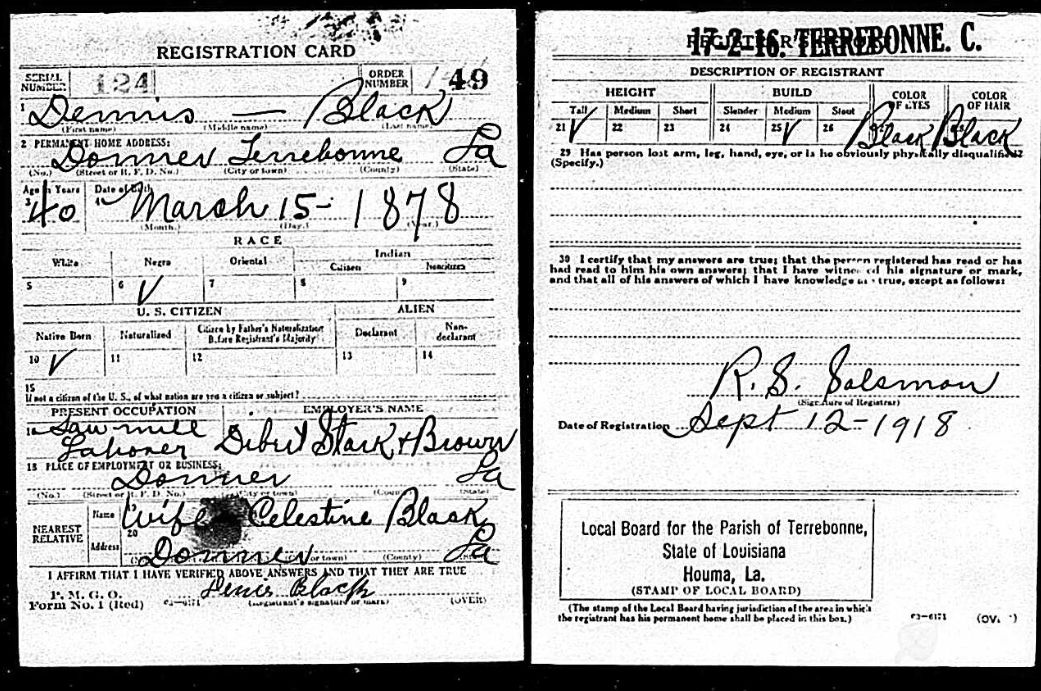 REGISTRATION CARD
SERIAL NUMBER 124 ORDER NUMBER 49
1 Dennis — Black
(First name) (Middle name) (Last name)
2 PERMANENT HOME ADDRESS:
Donner Terrebonne La
(No.) (Street or R. F. D. No.) (City or town) (County) (State)
Age in Years Date of Birth
3 40 4 March 15- 1878
(Month.) (Day.) (Year.)
RACE
White Negro Oriental Indian
Citizen Noncitizen
5 6 ✓ 7 8 9
U. S. CITIZEN ALIEN
Native Born Naturalized Citizen by Father's Naturalization Before Registrant's Majority Declarant Non-declarant
10 ✓ 11 12 13 14
15
If not a citizen of the U. S., of what nation are you a citizen or subject?
PRESENT OCCUPATION EMPLOYER'S NAME
16 Saw mill
Laborer Dibert Stark & Brown
18 PLACE OF EMPLOYMENT OR BUSINESS:
Donner La
(No.) (Street or R. F. D. No.) (City or town) (County) (State)
NEAREST RELATIVE
Name Wife Celestine Black
20
Address Donner La
(City or town) (County) (State)
I AFFIRM THAT I HAVE VERIFIED ABOVE ANSWERS AND THAT THEY ARE TRUE
P. M. G. O.
Form No. 1 (Red) 03-6171 Denis Black
(Registrant's signature or mark) (OVER)
17-2-16. TERREBONNE. C.
REGISTRAR'S REPORT
DESCRIPTION OF REGISTRANT
HEIGHT BUILD COLOR OF EYES COLOR OF HAIR
Tall Medium Short Slender Medium Stout
21 ✓ 22 23 24 25 ✓ 26 Black Black
29 Has person lost arm, leg, hand, eye, or is he obviously physically disqualified?
(Specify.)
30 I certify that my answers are true; that the person registered has read or has
had read to him his own answers; that I have witnessed his signature or mark,
and that all of his answers of which I have knowledge are true, except as follows:
R. S. Salsman
(Signature of Registrar)
Date of Registration Sept 12-1918
Local Board for the Parish of Terrebonne,
State of Louisiana
Houma, La.
(STAMP OF LOCAL BOARD)
(The stamp of the Local Board having jurisdiction of the area in which
the registrant has his permanent home shall be placed in this box.)
03-6171 (OVER)